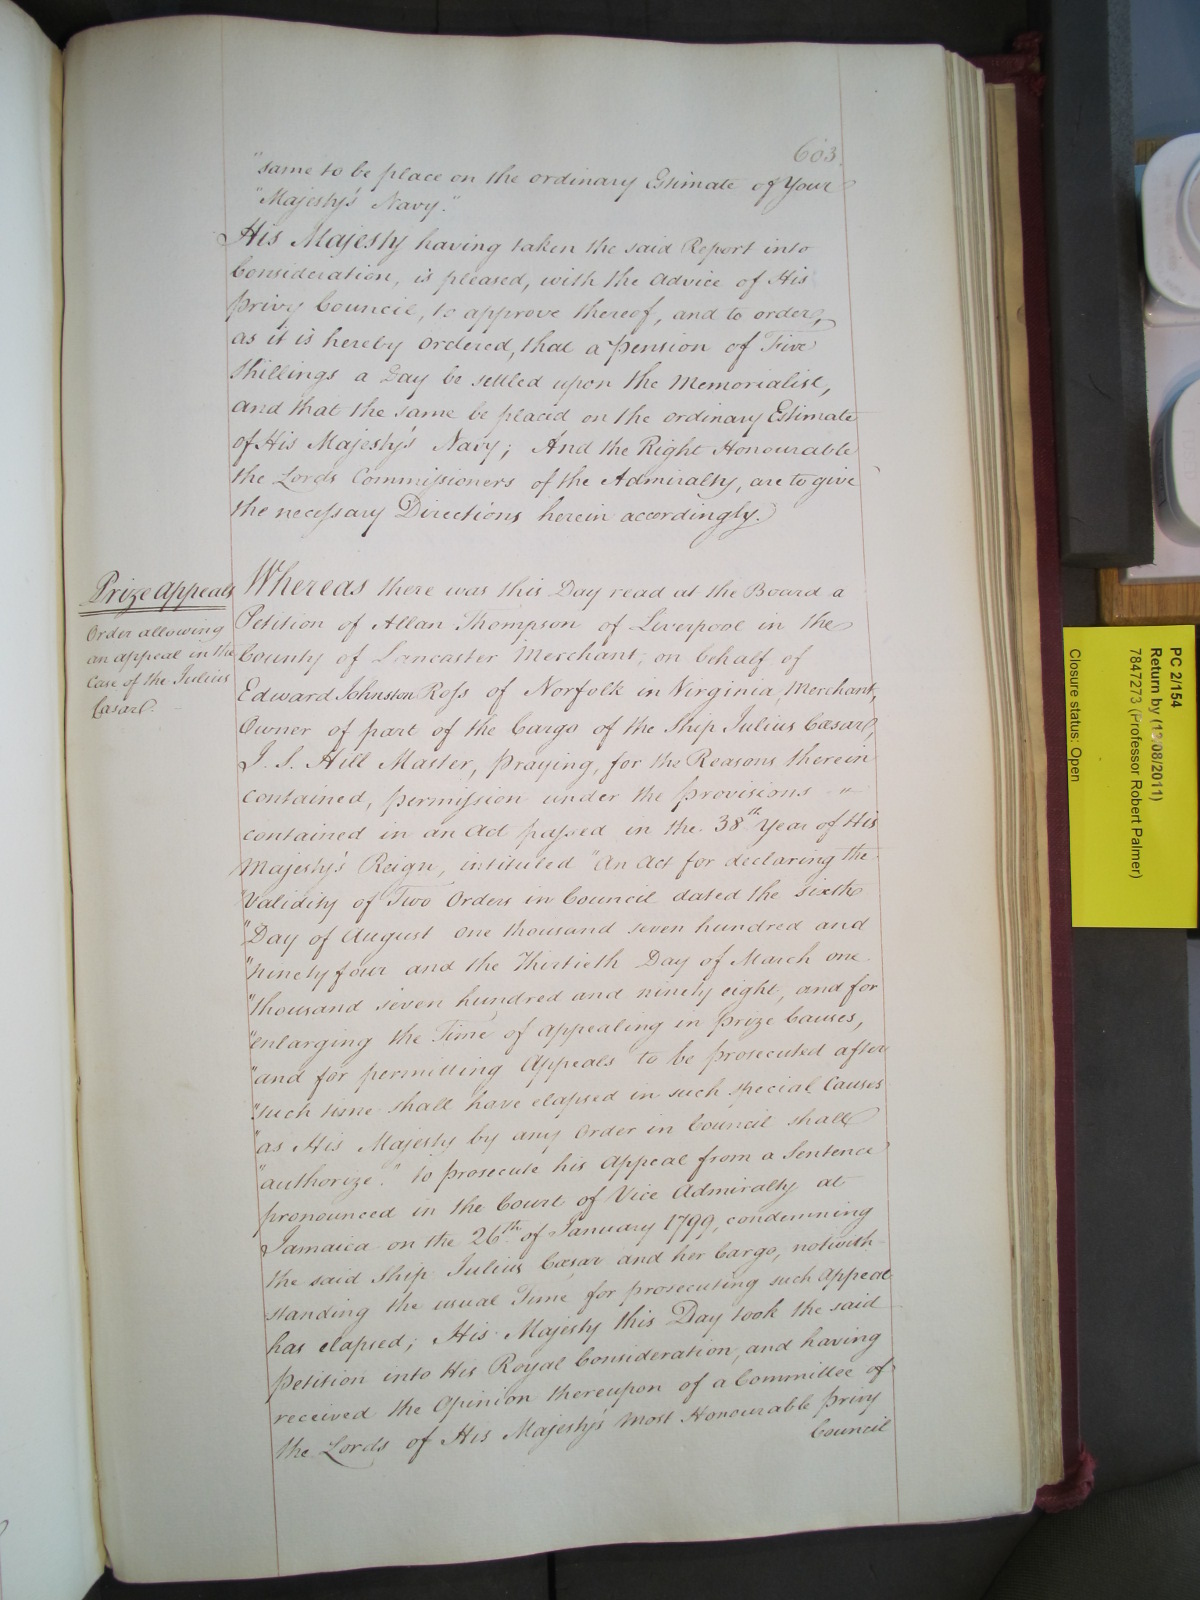 603.
"same to be place on the ordinary Estimate of Your
"Majesty's Navy."
His Majesty having taken the said Report into
Consideration, is pleased, with the advice of His
Privy Council, to approve thereof, and to order,
as it is hereby ordered, that a Pension of Five
Shillings a Day be settled upon the Memorialist,
and that the same be placed on the ordinary Estimate
of His Majesty's Navy; And the Right Honourable
the Lords Commissioners of the Admiralty, are to give
the necessary Directions herein accordingly.
Prize Appeals
Order allowing
an appeal in the
Case of the Julius
Cæsar.
Whereas there was this Day read at the Board a
Petition of Allan Thompson of Liverpool in the
County of Lancaster Merchant, on behalf of
Edward Johnston Ross of Norfolk in Virginia, Merchant,
Owner of part of the Cargo of the Ship Julius Cæsar,
J. S. Hill Master, praying, for the Reasons therein
contained, permission under the provisions "
contained in an Act passed in the 38th Year of His
Majesty's Reign, intituled "An Act for declaring the
"Validity of Two Orders in Council dated the sixth
"Day of August one thousand seven hundred and
"ninety four and the Thirtieth Day of March one
"thousand seven hundred and ninety eight, and for
"enlarging the Time of appealing in Prize Causes,
"and for permitting Appeals to be prosecuted after
"such time shall have elapsed in such special Causes
"as His Majesty by any Order in Council shall
"authorize." to prosecute his Appeal from a Sentence
pronounced in the Court of Vice Admiralty at
Jamaica on the 26th of January 1799, condemning
the said Ship Julius Cæsar and her Cargo, notwith-
standing the usual Time for prosecuting such Appeal
has elapsed; His Majesty this Day took the said
Petition into His Royal Consideration, and having
received the Opinion thereupon of a Committee of
the Lords of His Majesty's most Honourable Privy
Council
PC 2/154
Return by (13/08/2011)
7847273 (Professor Robert Palmer)
Closure status: Open